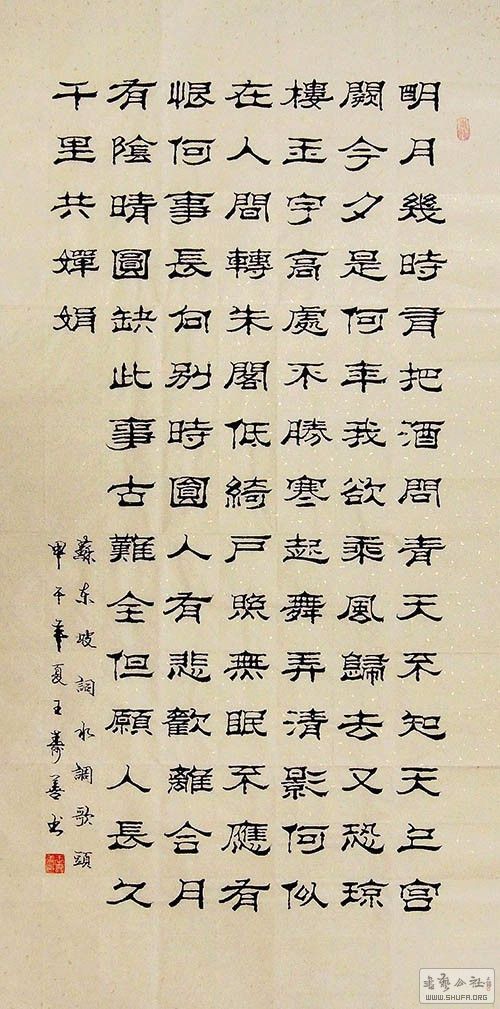 明月幾時有把酒問青天不知天上宮
闕今夕是何年我欲乘風歸去又恐琼
樓玉宇高處不勝寒起舞弄清影何似
在人間轉朱閣低綺戶照無眠不應有
恨何事長向別時圓人有悲歡離合月
有陰晴圓缺此事古難全但願人長久
千里共嬋娟
蘇東坡詞水調歌頭
甲午年夏王壽善书
WWW.SHUFA.ORG